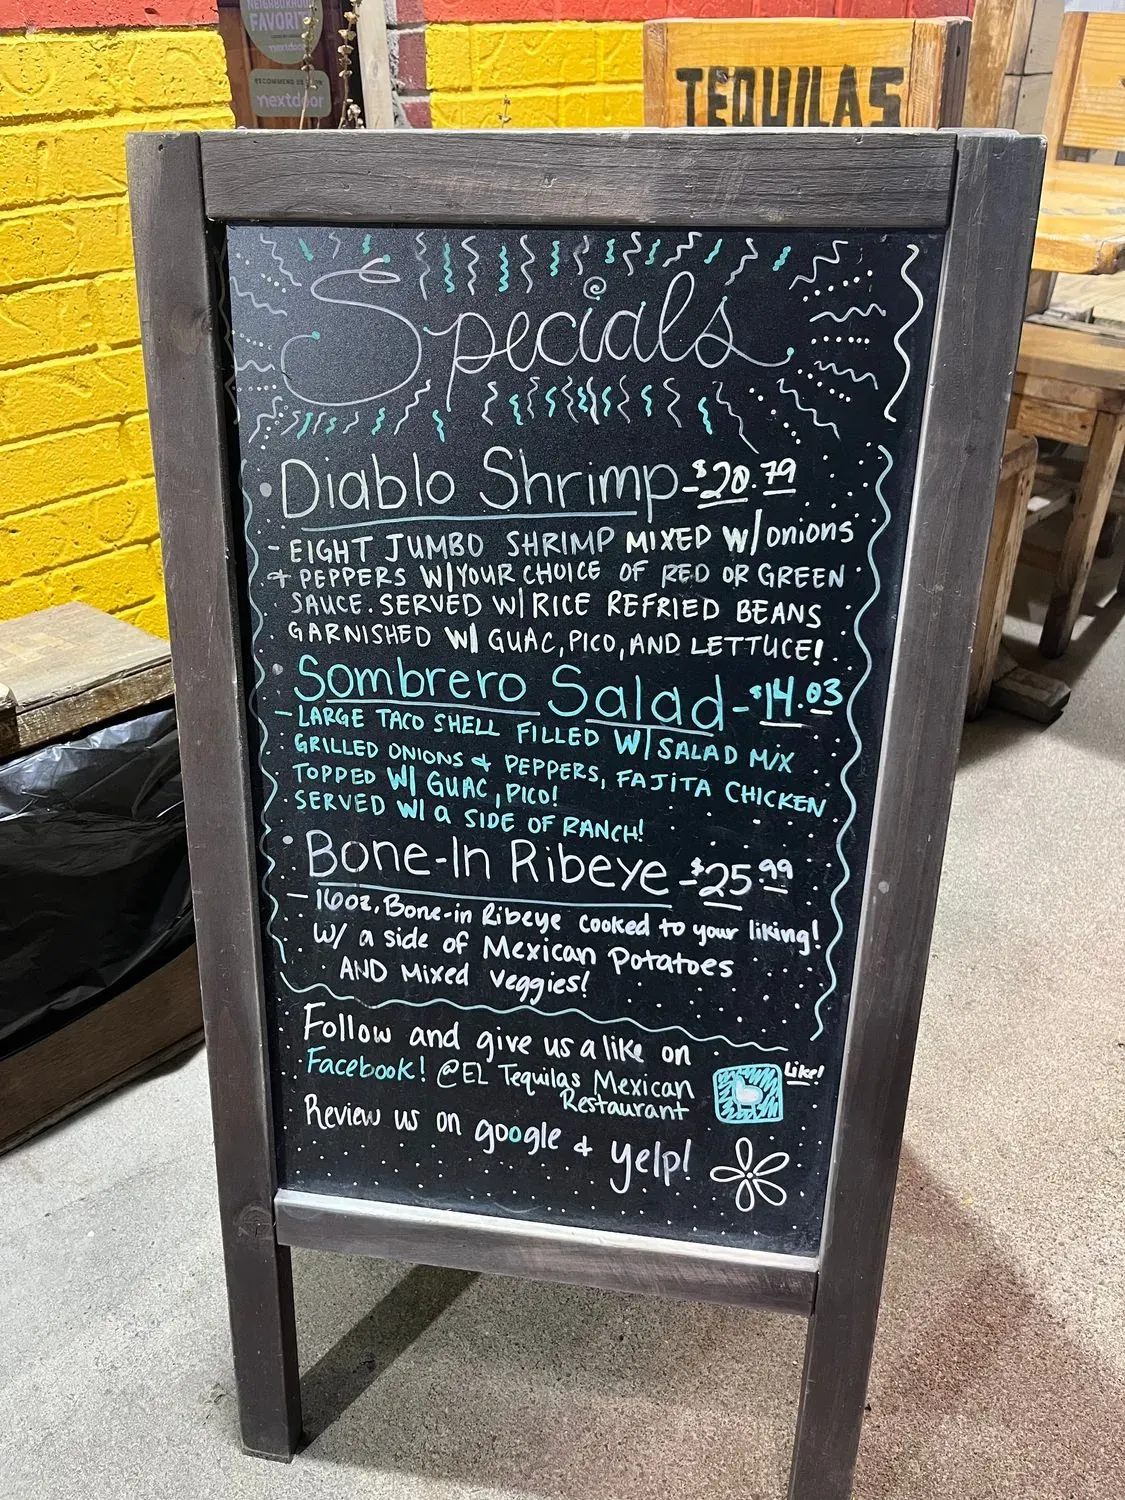 NEIGHBORHOOD
FAVORITE
nextdoor
RECOMMEND US ON
nextdoor
TEQUILAS
Specials
Diablo Shrimp-$20.79
- EIGHT JUMBO SHRIMP MIXED W/onions
+ PEPPERS W/YOUR CHOICE OF RED OR GREEN
SAUCE. SERVED W/RICE REFRIED BEANS
GARNISHED W/ GUAC, PICO, AND LETTUCE!
Sombrero Salad-$14.03
- LARGE TACO SHELL FILLED W/SALAD MIX
GRILLED ONIONS + PEPPERS, FAJITA CHICKEN
TOPPED W/ GUAC, PICO!
SERVED W/ a SIDE OF RANCH!
Bone-In Ribeye-$25.99
- 16oz, Bone-in Ribeye cooked to your liking!
W/ a side of Mexican Potatoes
AND Mixed Veggies!
Follow and give us a like on
Facebook! @EL Tequilas Mexican
Restaurant
Like!
Review us on google + yelp!